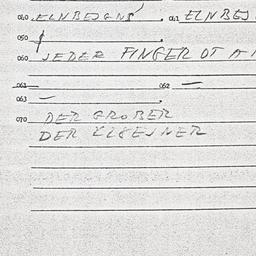 010 ELNBEJGNS 011 ELNBEJ
050
060 JEDER FINGER OT A
061 — 062 —
063 —
070 DER GROBER
DER KLOEJNER